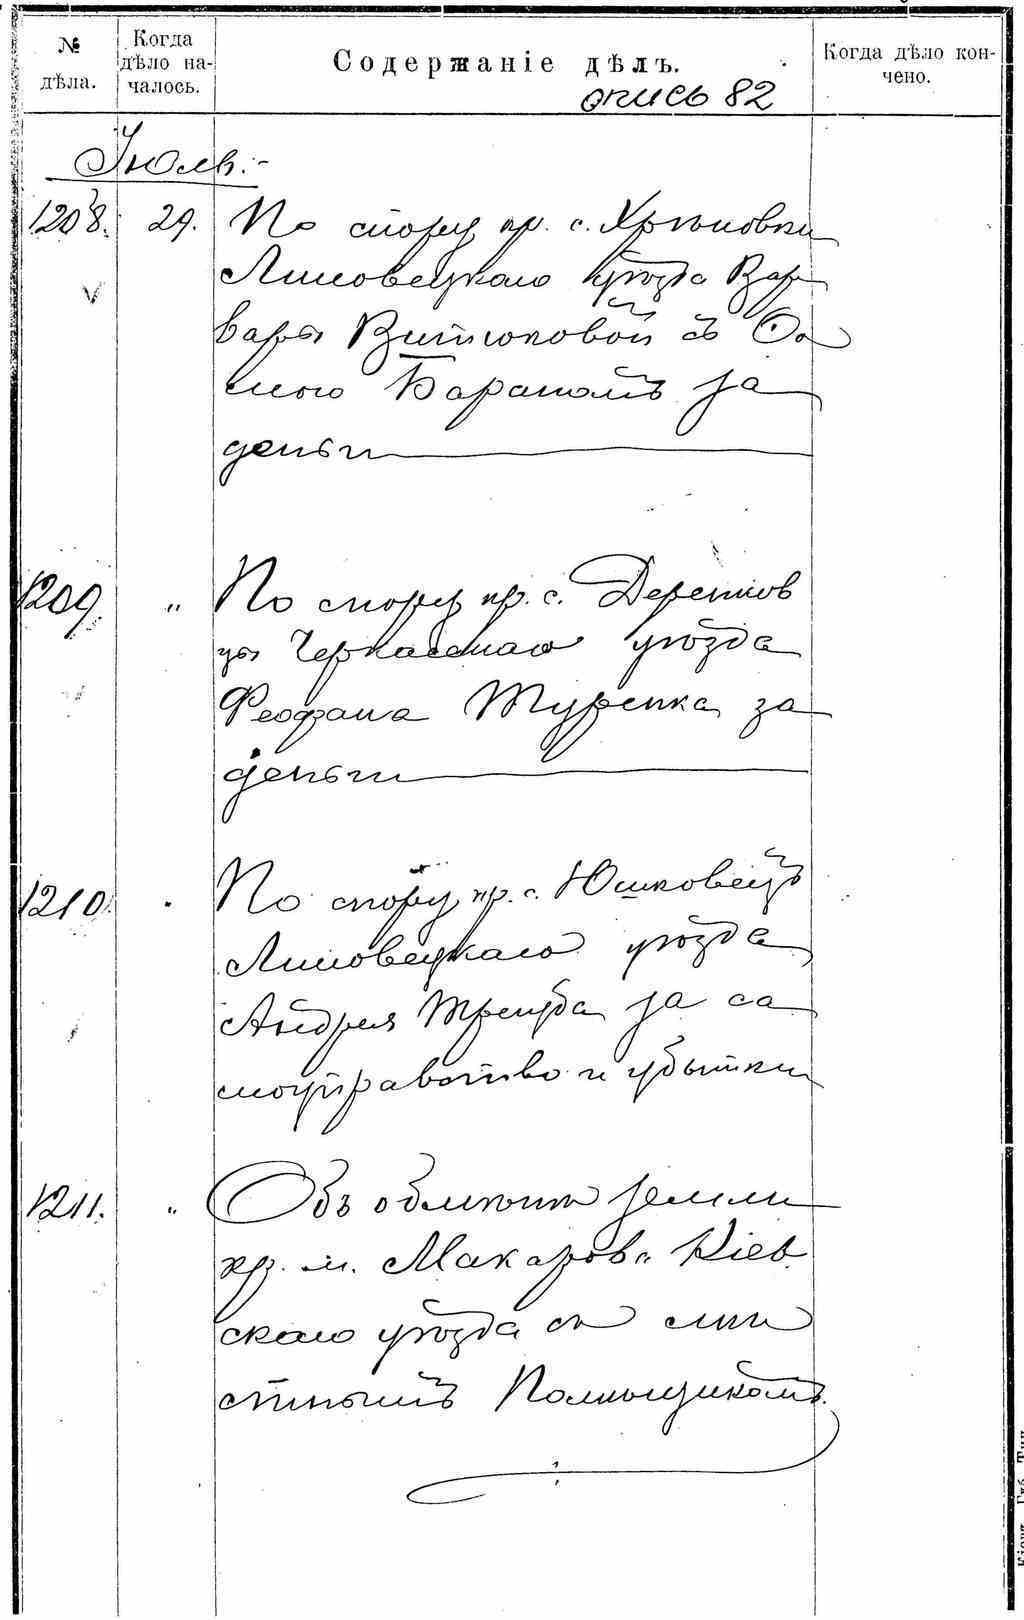 № дѣла.
Когда дѣло на-
чалось.
Содержаніе дѣлъ.
Когда дѣло кон-
чено.
опись 82
Іюль.
1208. 29. По спору кр. с. Хрѣновки
Липовецкаго уѣзда Вар
вары Витюковой съ
Бараномъ за
деньги
1209. " По спору кр. с. Деренков
цы Черкасскаго уѣзда
Феофана Туренка за
деньги
1210. " По спору кр. с. Юшковецъ
Липовецкаго уѣзда
Андрея за са
моуправство и убытки
1211. " Объ обмѣнѣ земли
кр. м. Макарова Кіев
скаго уѣзда съ мѣ
стнымъ Помѣщикомъ.
Кіевъ. Губ. Тип.